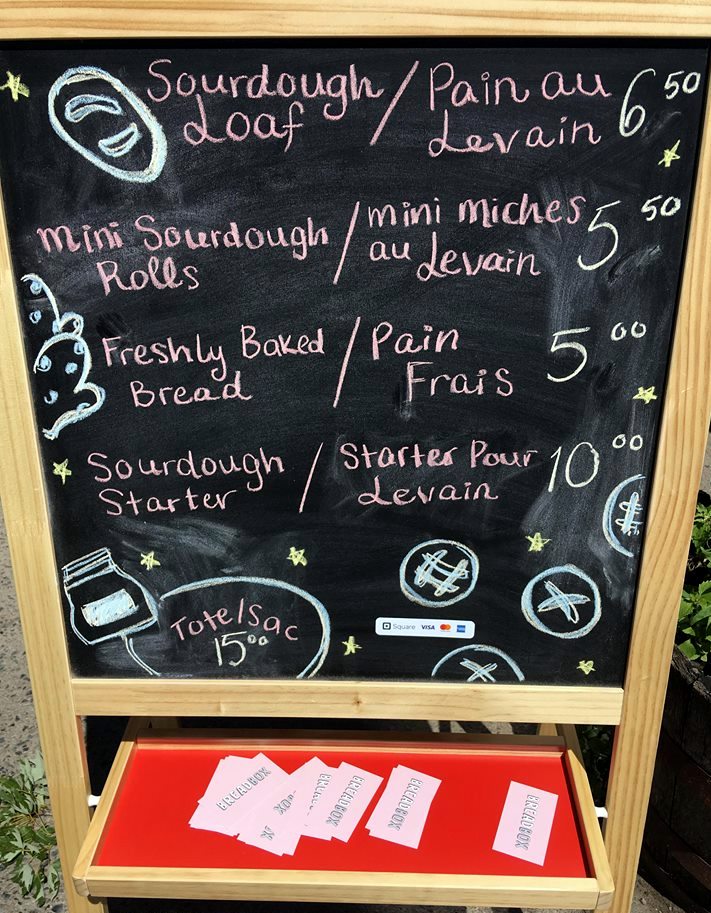 Sourdough / Pain au 6 50
Loaf Levain
mini Sourdough / mini miches 5 50
Rolls au Levain
Freshly Baked / Pain 5 00
Bread Frais
Sourdough / Starter Pour 10 00
Starter Levain
Tote/Sac
15 00
Square VISA
BREADBOX
BREADBOX
BREADBOX
BREADBOX